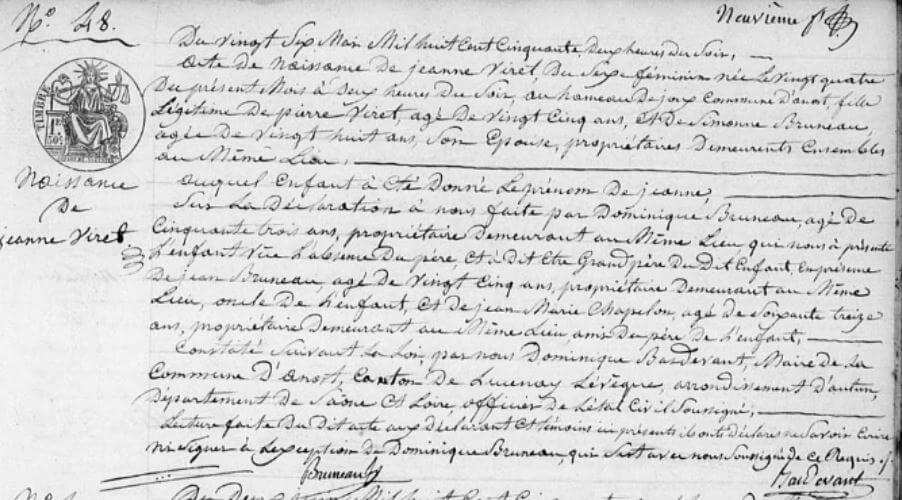 N.° 48.
Neuvième
Du vingt Six Mai Mil huit Cent Cinquante, Deux heures Du Soir,
acte de Naissance De jeanne Viret Du Sexe féminin née Le vingt quatre
Du présent Mois à Deux heures Du Soir, au hameau De joux Commune D'anost, fille
Légitime De pierre Viret, agé De Vingt Cinq ans, et De Simonne Bruneau,
agée De Vingt huit ans, Son Epouse, propriétaires Demeurents Ensembles
au Même Lieu.
TIMBRE
Naissance
De
jeanne Viret
auquel Enfant à Eté Donné Le prénom De jeanne,
Sur La Déclaration à nous faite par Dominique Bruneau, agé De
Cinquante trois ans, propriétaire Demeurant au Même Lieu qui nous à présenté
L'enfant Vûe L'absence Du père, et à Dit Etre Grand père Du Dit Enfant, En présence
De jean Bruneau, agé De Vingt Cinq ans, propriétaire Demeurant au Même
Lieu, oncle De L'enfant, et De jean Marie Chapelon, agé De Soixante treize
ans, propriétaire Demeurant au Même Lieu, amis Du père De L'enfant,
Constaté Suivant La Loi, par nous Dominique Basdevant, Maire De La
Commune D'anost, Canton De Lucenay Lévêque, arrondissement D'autun,
Département De Saône et Loire, officier De L'état Civil Soussigné,
Lecture faite Du Dit acte aux Déclarant et témoins ici présents ils ont Déclarés ne Savoir Ecrire
ni Signer à L'exception De Dominique Bruneau, qui S'est avec nous Soussigné De Ce Requis.
Bruneau
Basdevant